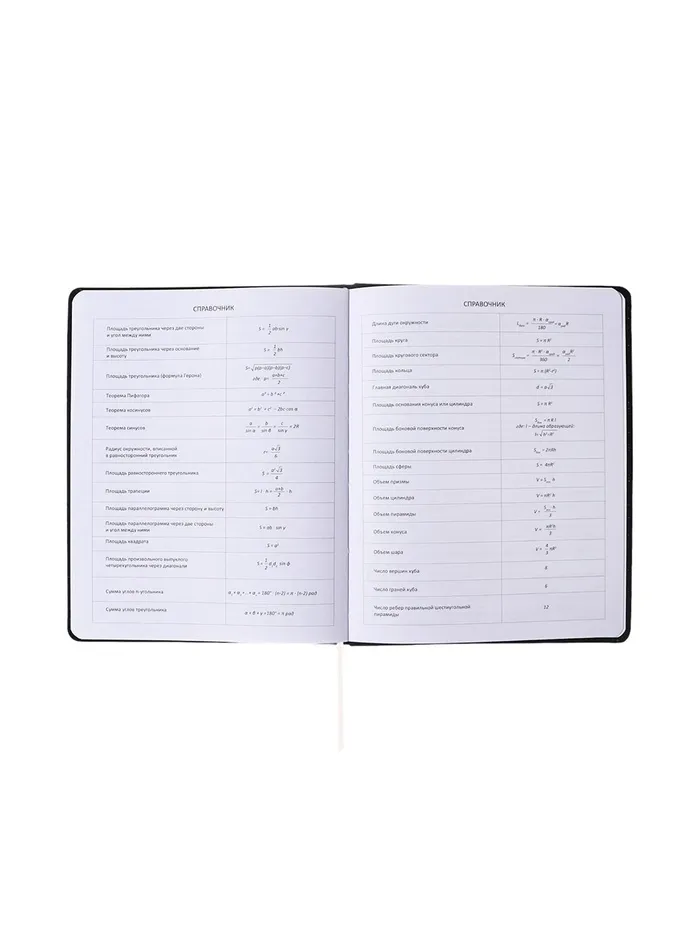 СПРАВОЧНИК
Площадь треугольника через две стороны
и угол между ними
S = 1/2 absin γ
Площадь треугольника через основание
и высоту
S = 1/2 bh
Площадь треугольника (формула Герона)
S=√p(p-a)(p-b)(p-c)
где p= a+b+c/2
Теорема Пифагора
a² + b² = c²
Теорема косинусов
a² = b² + c² - 2bc cos α
Теорема синусов
a/sin α = b/sin β = c/sin γ = 2R
Радиус окружности, вписанной
в равносторонний треугольник
r= a√3/6
Площадь равностороннего треугольника
S = a²√3/4
Площадь трапеции
S= l · h = a+b/2 · h
Площадь параллелограмма через сторону и высоту
S = bh
Площадь параллелограмма через две стороны
и угол между ними
S = ab · sin γ
Площадь квадрата
S = a²
Площадь произвольного выпуклого
четырехугольника через диагонали
S = 1/2 d₁d₂ sin ϕ
Сумма углов n-угольника
α₁+ α₂+ ..+ αₙ = 180° · (n-2) = π · (n-2) рад
Сумма углов треугольника
α + β + γ = 180° = π рад
СПРАВОЧНИК
Длина дуги окружности
Площадь круга
S = π R²
Площадь кругового сектора
Площадь кольца
Главная диагональ куба
d = a√3
Площадь основания конуса или цилиндра
S = π R²
Площадь боковой поверхности конуса
Sбок = π R l
где l – длина образующей;
l=√h²+R²
Площадь боковой поверхности цилиндра
Площадь сферы
S = 4πR²
Объем призмы
V = Sосн h
Объем цилиндра
V = πR² h
Объем пирамиды
V = Sосн · h/3
Объем конуса
V = πR²h/3
Объем шара
V = 4/3 πR³
Число вершин куба
8
Число граней куба
6
Число ребер правильной шестиугольной
пирамиды
12